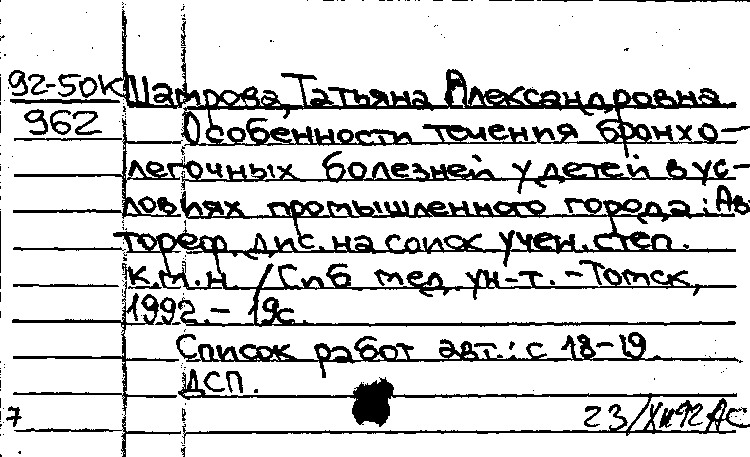 92-50К Шамрова, Татьяна Александровна
962 Особенности течения бронхо-
легочных болезней у детей в ус-
ловиях промышленного города: Ав-
тореф. дис. на соиск учен. степ.
к.м.н. / Сиб мед. ун-т. - Томск,
1992. - 19с.
Список работ авт.: с 18-19.
ДСП.
7 23/XII 92 АС